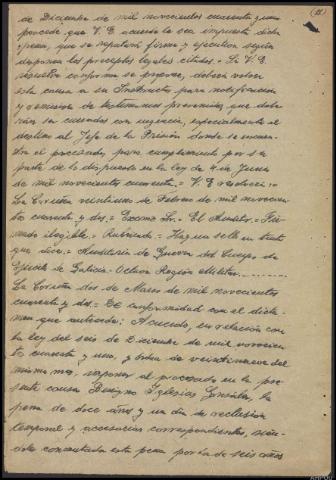 (11)
de Diciembre de mil novecientos cuarenta y uno
procede que V. E acuerde le sea impuesta dicha
pena, que se reputará firme y ejecutiva según
disponen los preceptos legales citados.= Si V. E
resuelve conforme se propone, deberá volver
esta causa a su Instructor para notificacion
y remision de testimonios prevenidos que debe-
rán ser cursados con urgencia, especialmente el
destino al Jefe de la Prisión donde se encuen-
tra el procesado, para cumplimiento por su
parte de lo dispuesto en la ley de 4 de Junio
de mil novecientos cuarenta.= V. E resolverá.=
La Coruña veintiuno de Febrero de mil novecien-
tos cuarenta y dos.= Excmo Sr.= El Auditor.= Fir-
mado ilegible.= Rubricado.= Hay un sello en tinta
que dice.= Auditoría de Guerra del Cuerpo de
Ejército de Galicia.- Octava Región Militar.
La Coruña dos de Marzo de mil novecientos
cuarenta y dos.= De conformidad con el dicta-
men que antecede; Acuerdo, en relación con
la ley del seis de Diciembre de mil novecien-
tos cuarenta y uno, y orden de veintinueve del
mismo mes, imponer al procesado en la pre-
sente causa Benigno Iglesias González, la
pena de doce años y un dia de reclusión
temporal y accesorias correspondientes, sién-
dole conmutada esta pena por la de seis años